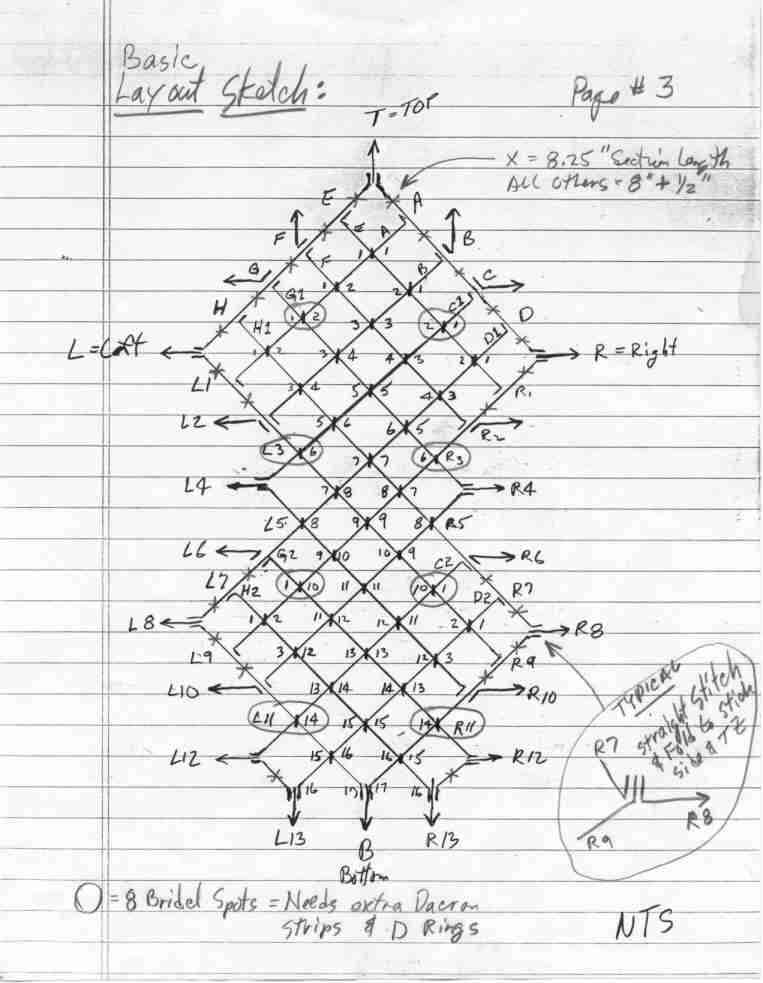 Basic
Layout Sketch:
Page # 3
T = TOP
X = 8.25" Section Length
All others = 8" + 1/2"
E A
E A
F B
1 1
F B
G C
1 2 2 1
G1 C1
H D
1 2 3 3 2 1
H1 D1
L = Left R = Right
1 2 3 4 4 3 2 1
L1 R1
3 4 5 5 4 3
L2 R2
5 6 6 5
L3 6 7 7 6 R3
L4 R4
7 8 8 7
L5 8 9 9 8 R5
L6 R6
G2 9 10 10 9 C2
L7 R7
H2 1 10 11 11 10 1 D2
L8 R8
1 2 11 12 12 11 2 1
L9 R9
3 12 13 13 12 3
L10 R10
13 14 14 13
L11 14 15 15 14 R11
L12 R12
15 16 16 15
16 17 17 16
L13 R13
B
Bottom
TYPICAL
straight Stitch
& Fold to Stick
side & TZ
R7
R8
R9
O = 8 Bridel Spots = Needs extra Dacron
Strips & D Rings
NTS